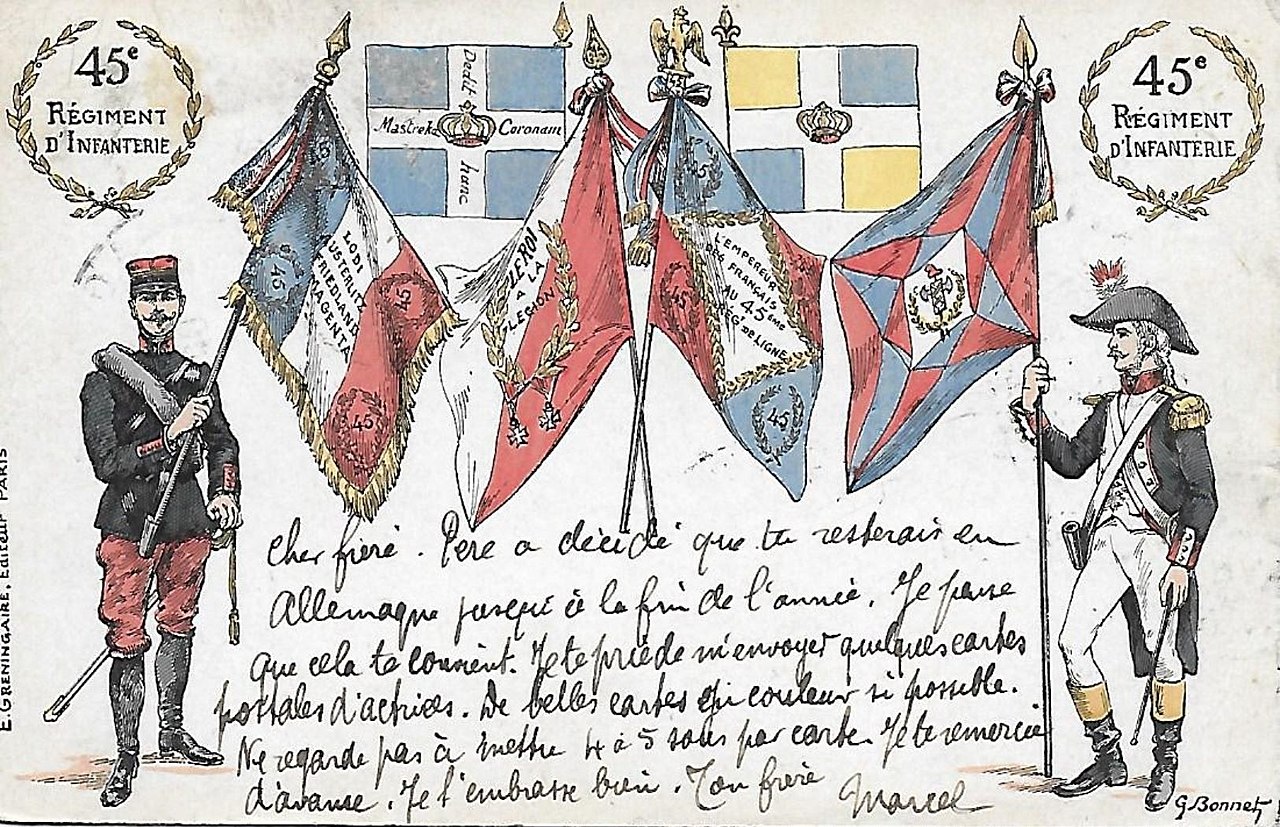 45e
RÉGIMENT
D'INFANTERIE
45e
RÉGIMENT
D'INFANTERIE
Dedit
Mastreka Coronam
hanc
45
45
45
45
LODI
AUSTERLITZ
FRIEDLAND
MAGENTA
LE ROI
A LA
LEGION
45
45
45
L'EMPEREUR
DES FRANÇAIS
AU 45ème
REGt DE LIGNE
E. GRENINGAIRE, Editeur PARIS
Cher frère. Père a décidé que tu resterais en
Allemagne jusqu'à la fin de l'année. Je pense
que cela te convient. Je te prie de m'envoyer quelques cartes
postales d'actrices. De belles cartes en couleur si possible.
Ne regarde pas à mettre 4 à 5 sous par carte. Je te remercie
d'avance. Je t'embrasse bien. Ton frère Marcel
G. Bonnet